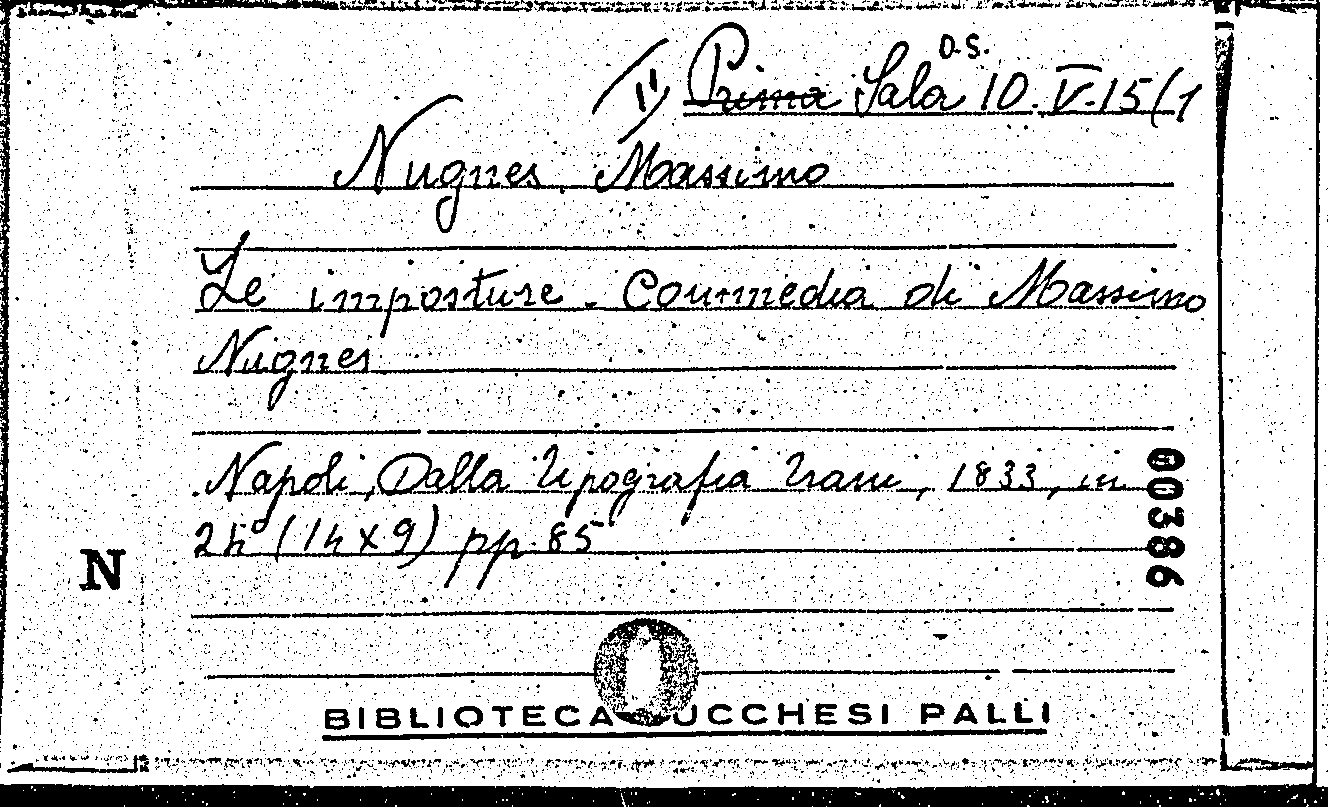 D.S.
1) Prima Sala 10. V.15(1
Nugnes. Massimo
Le imposture - Commedia di Massimo
Nugnes
Napoli, Dalla Tipografia Trani, 1833, in
24° (14x9) pp. 85
00386
N
BIBLIOTECA LUCCHESI PALLI